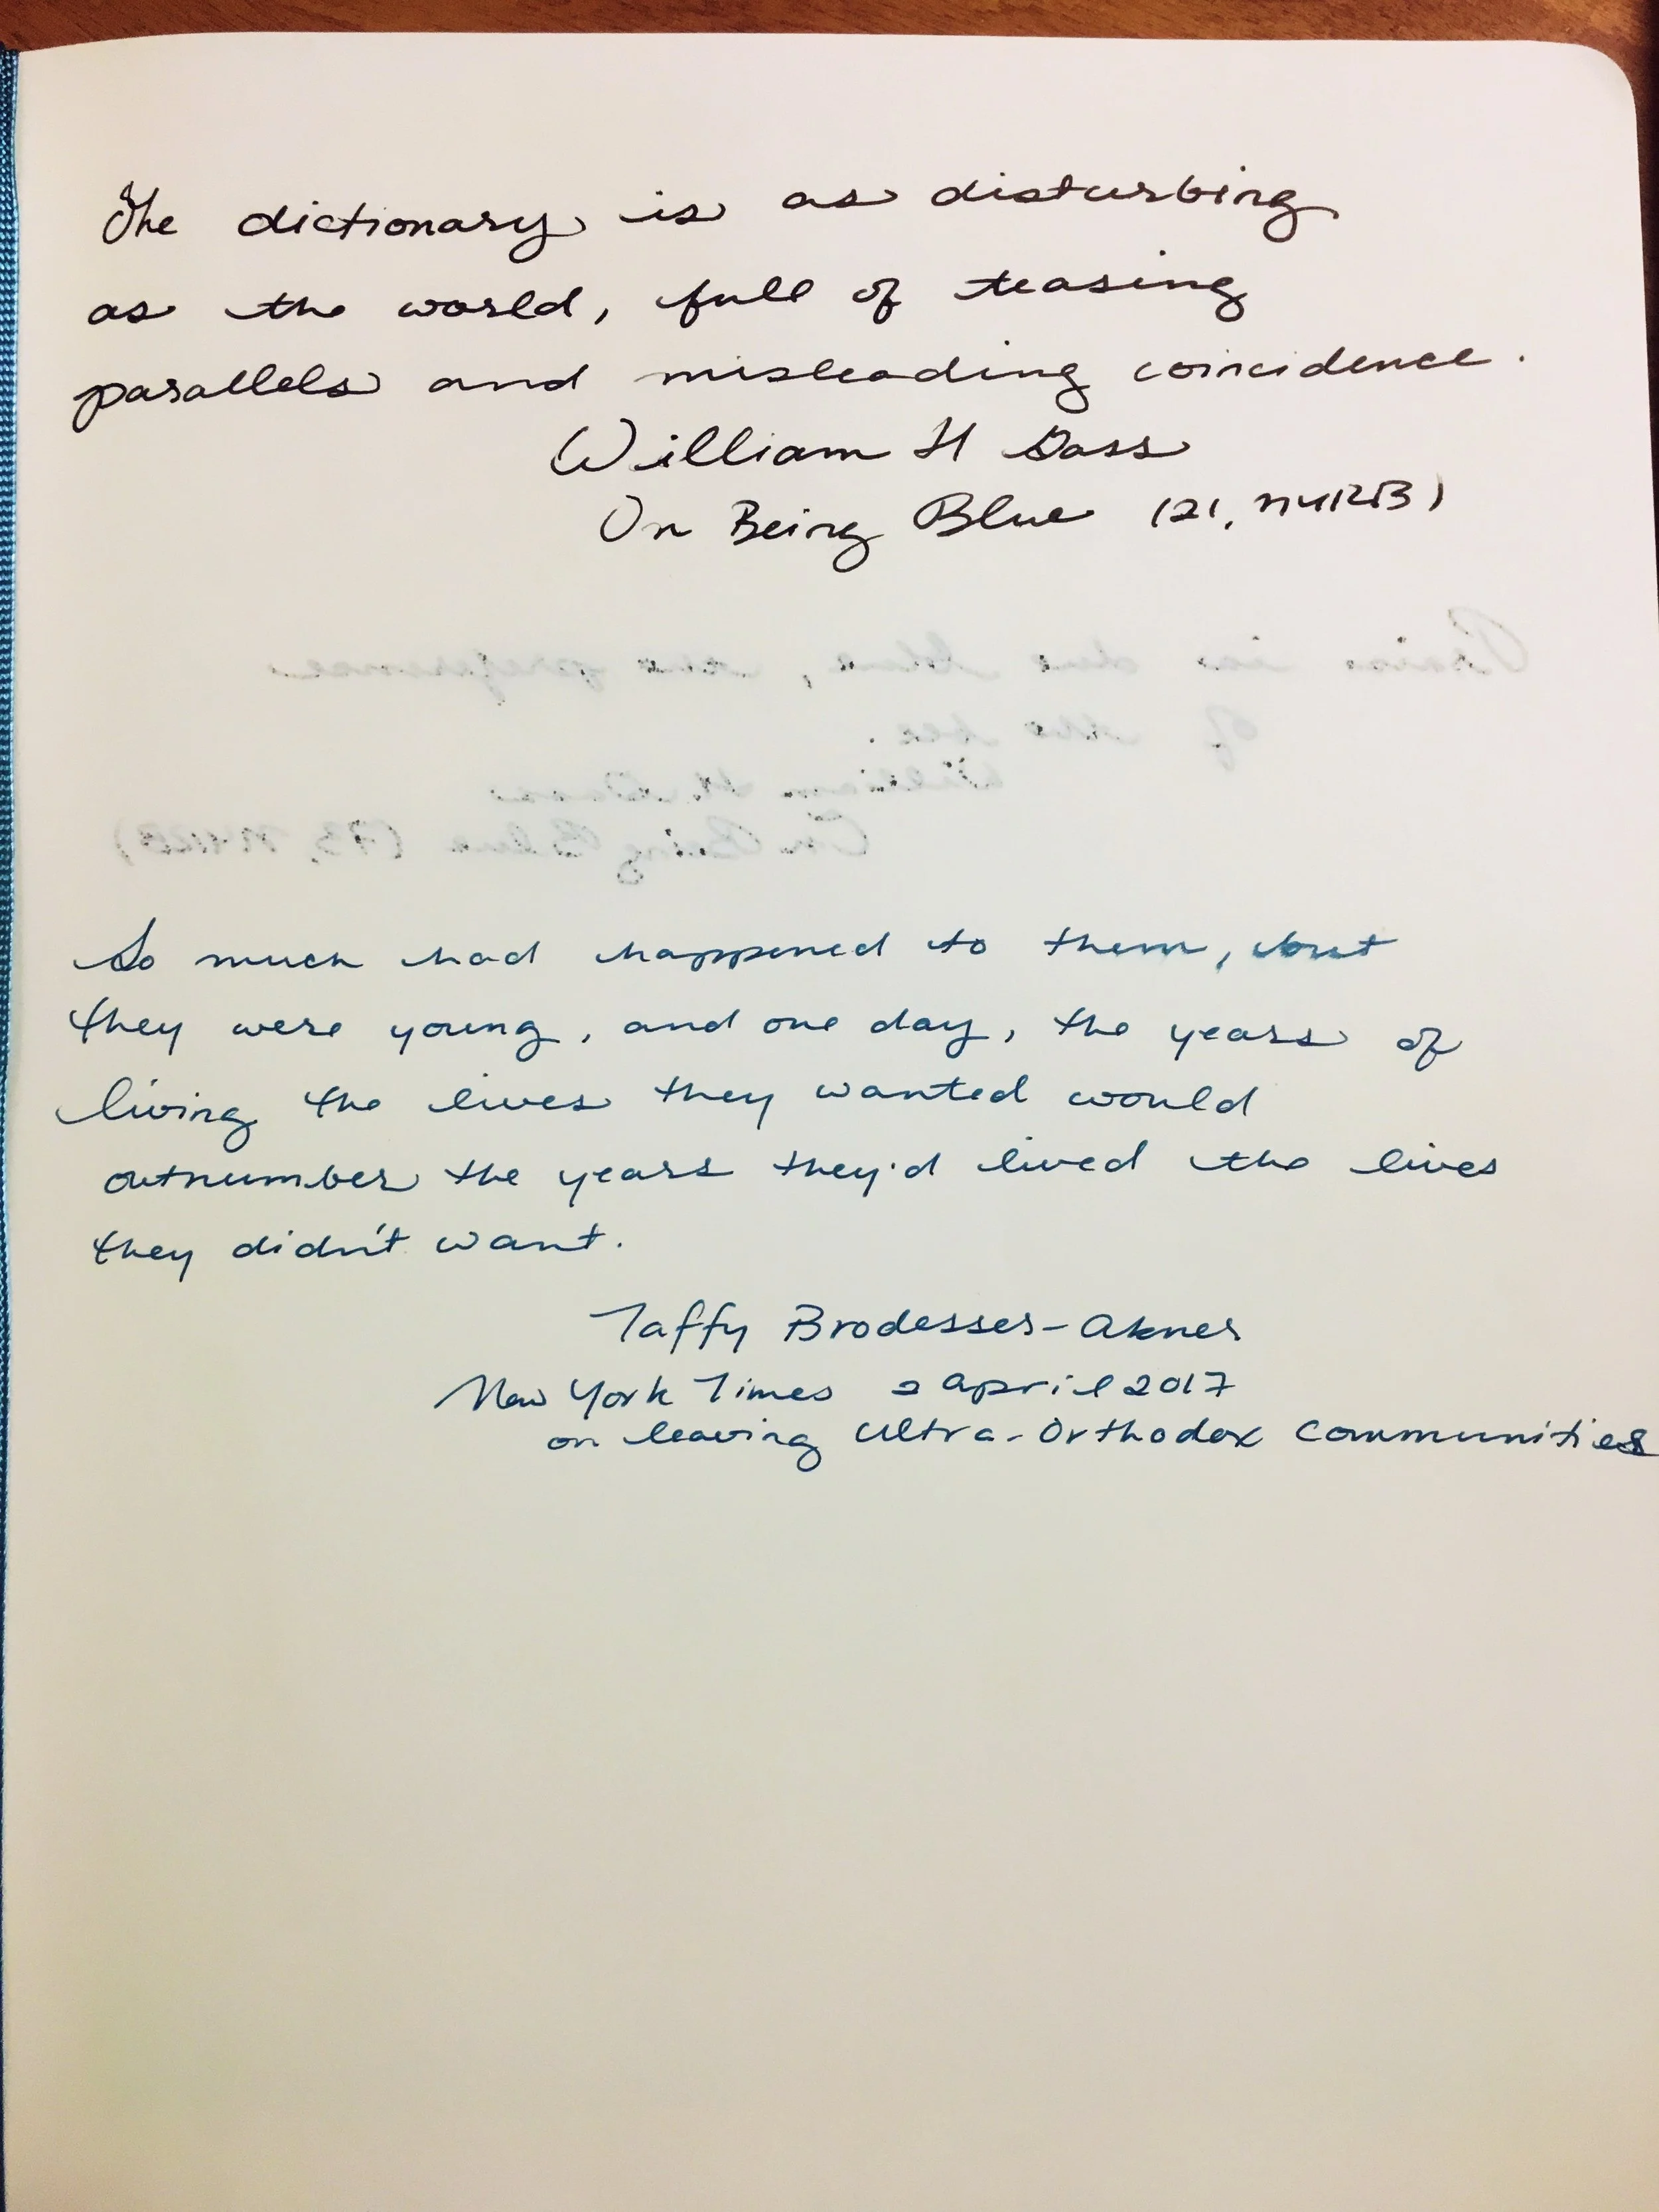 The dictionary is as disturbing
as the world, full of teasing
parallels and misleading coincidence.
William H Gass
On Being Blue (21, NYRB)
Praise is due blue, the preference
of the bee.
William H. Gass
On Being Blue (73, NYRB)
So much had happened to them, but
they were young, and one day, the years of
living the lives they wanted would
outnumber the years they'd lived the lives
they didn't want.
Taffy Brodesser-Akner
New York Times 2 April 2017
on leaving Ultra-Orthodox Communities